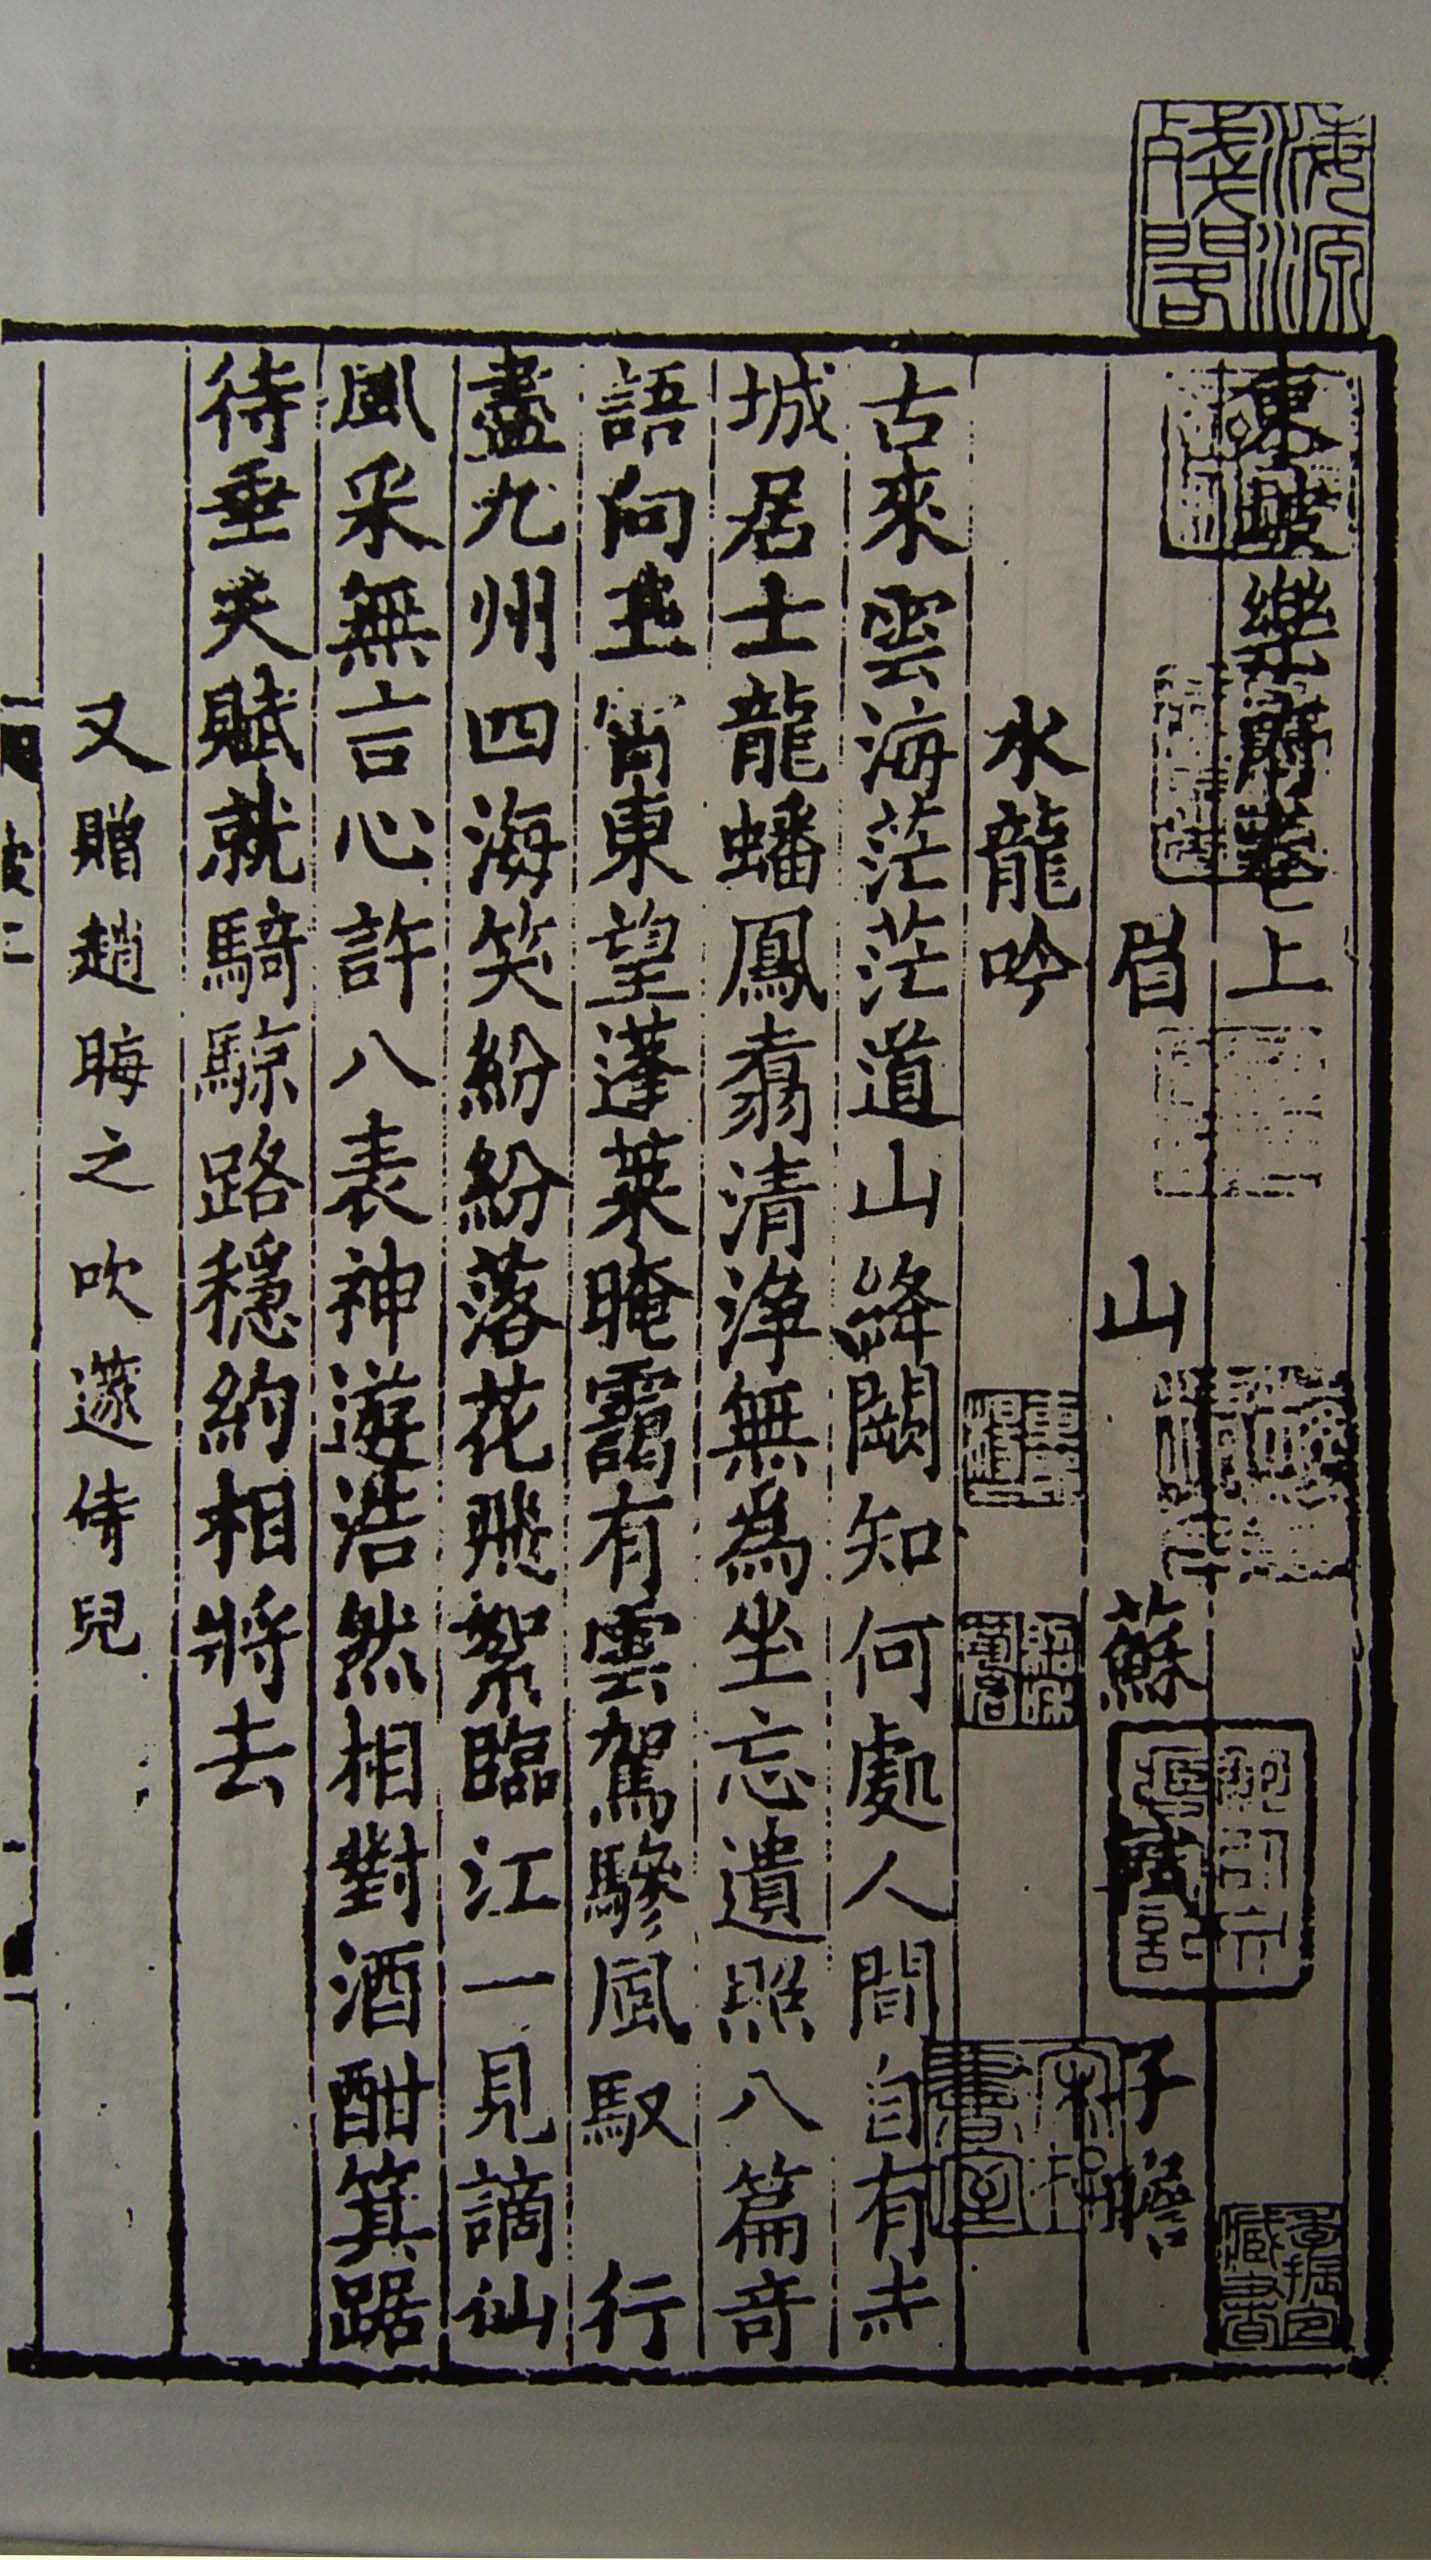 東坡樂府卷上
眉山蘇 子瞻
水龍吟
古來雲海茫茫道山絳闕知何處人間自有赤
城居士龍蟠鳳翥清淨無為坐忘遺照八篇奇
語向玉霄東望蓬萊晻靄有雲駕驂風馭 行
盡九州四海笑紛紛落花飛絮臨江一見謫仙
風采無言心許八表神遊浩然相對酒酣箕踞
待垂天賦就騎鯨路穩約相將去
又贈趙晦之吹篴侍兒
海源殘閣
季振宜藏書